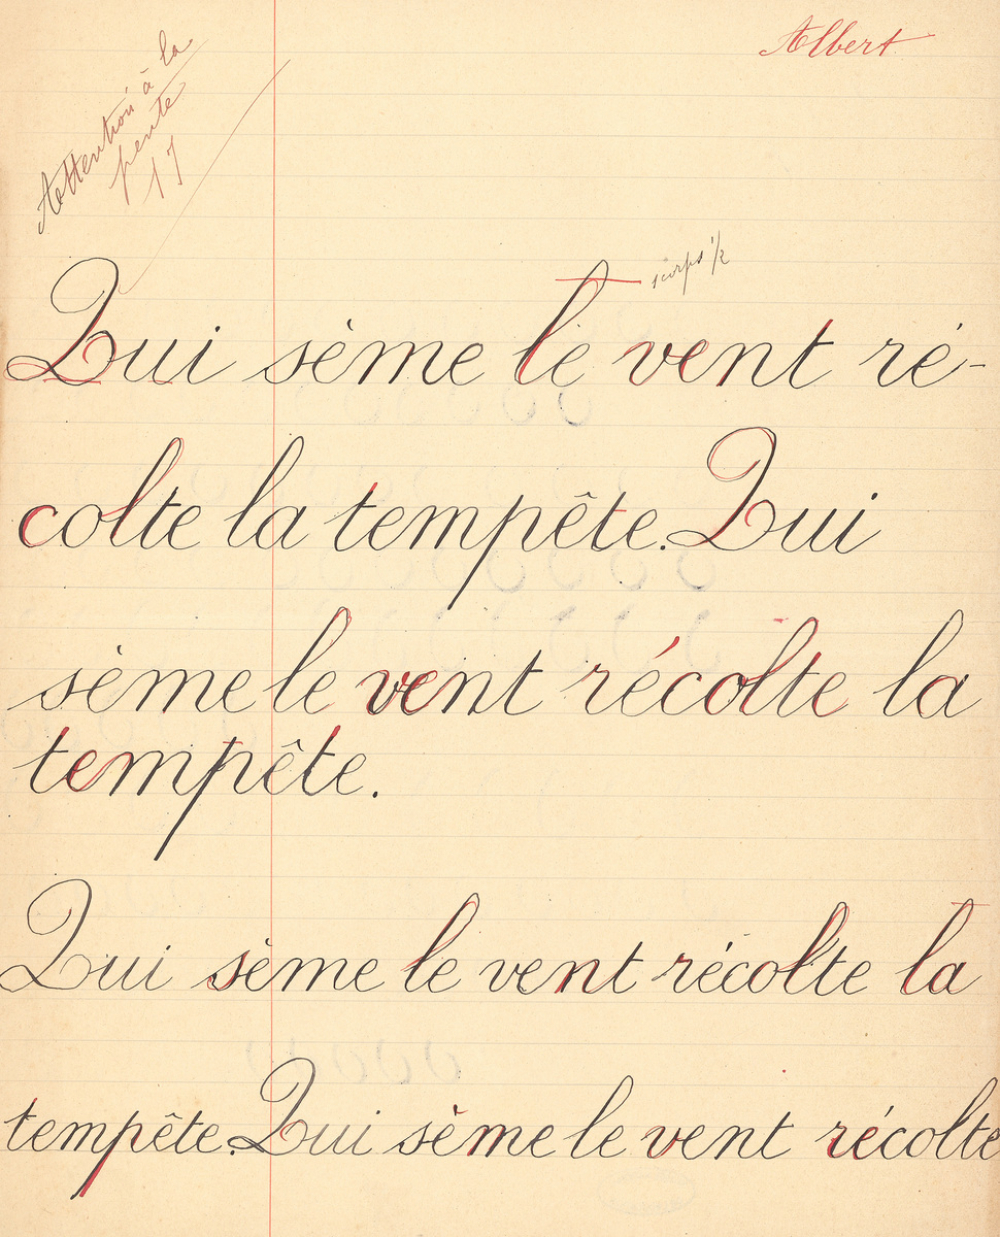 Albert
Attention à la
pente
17
corps 1/2
Qui sème le vent ré-
colte la tempête. Qui
sème le vent récolte la
tempête.
Qui sème le vent récolte la
tempête. Qui sème le vent récolte